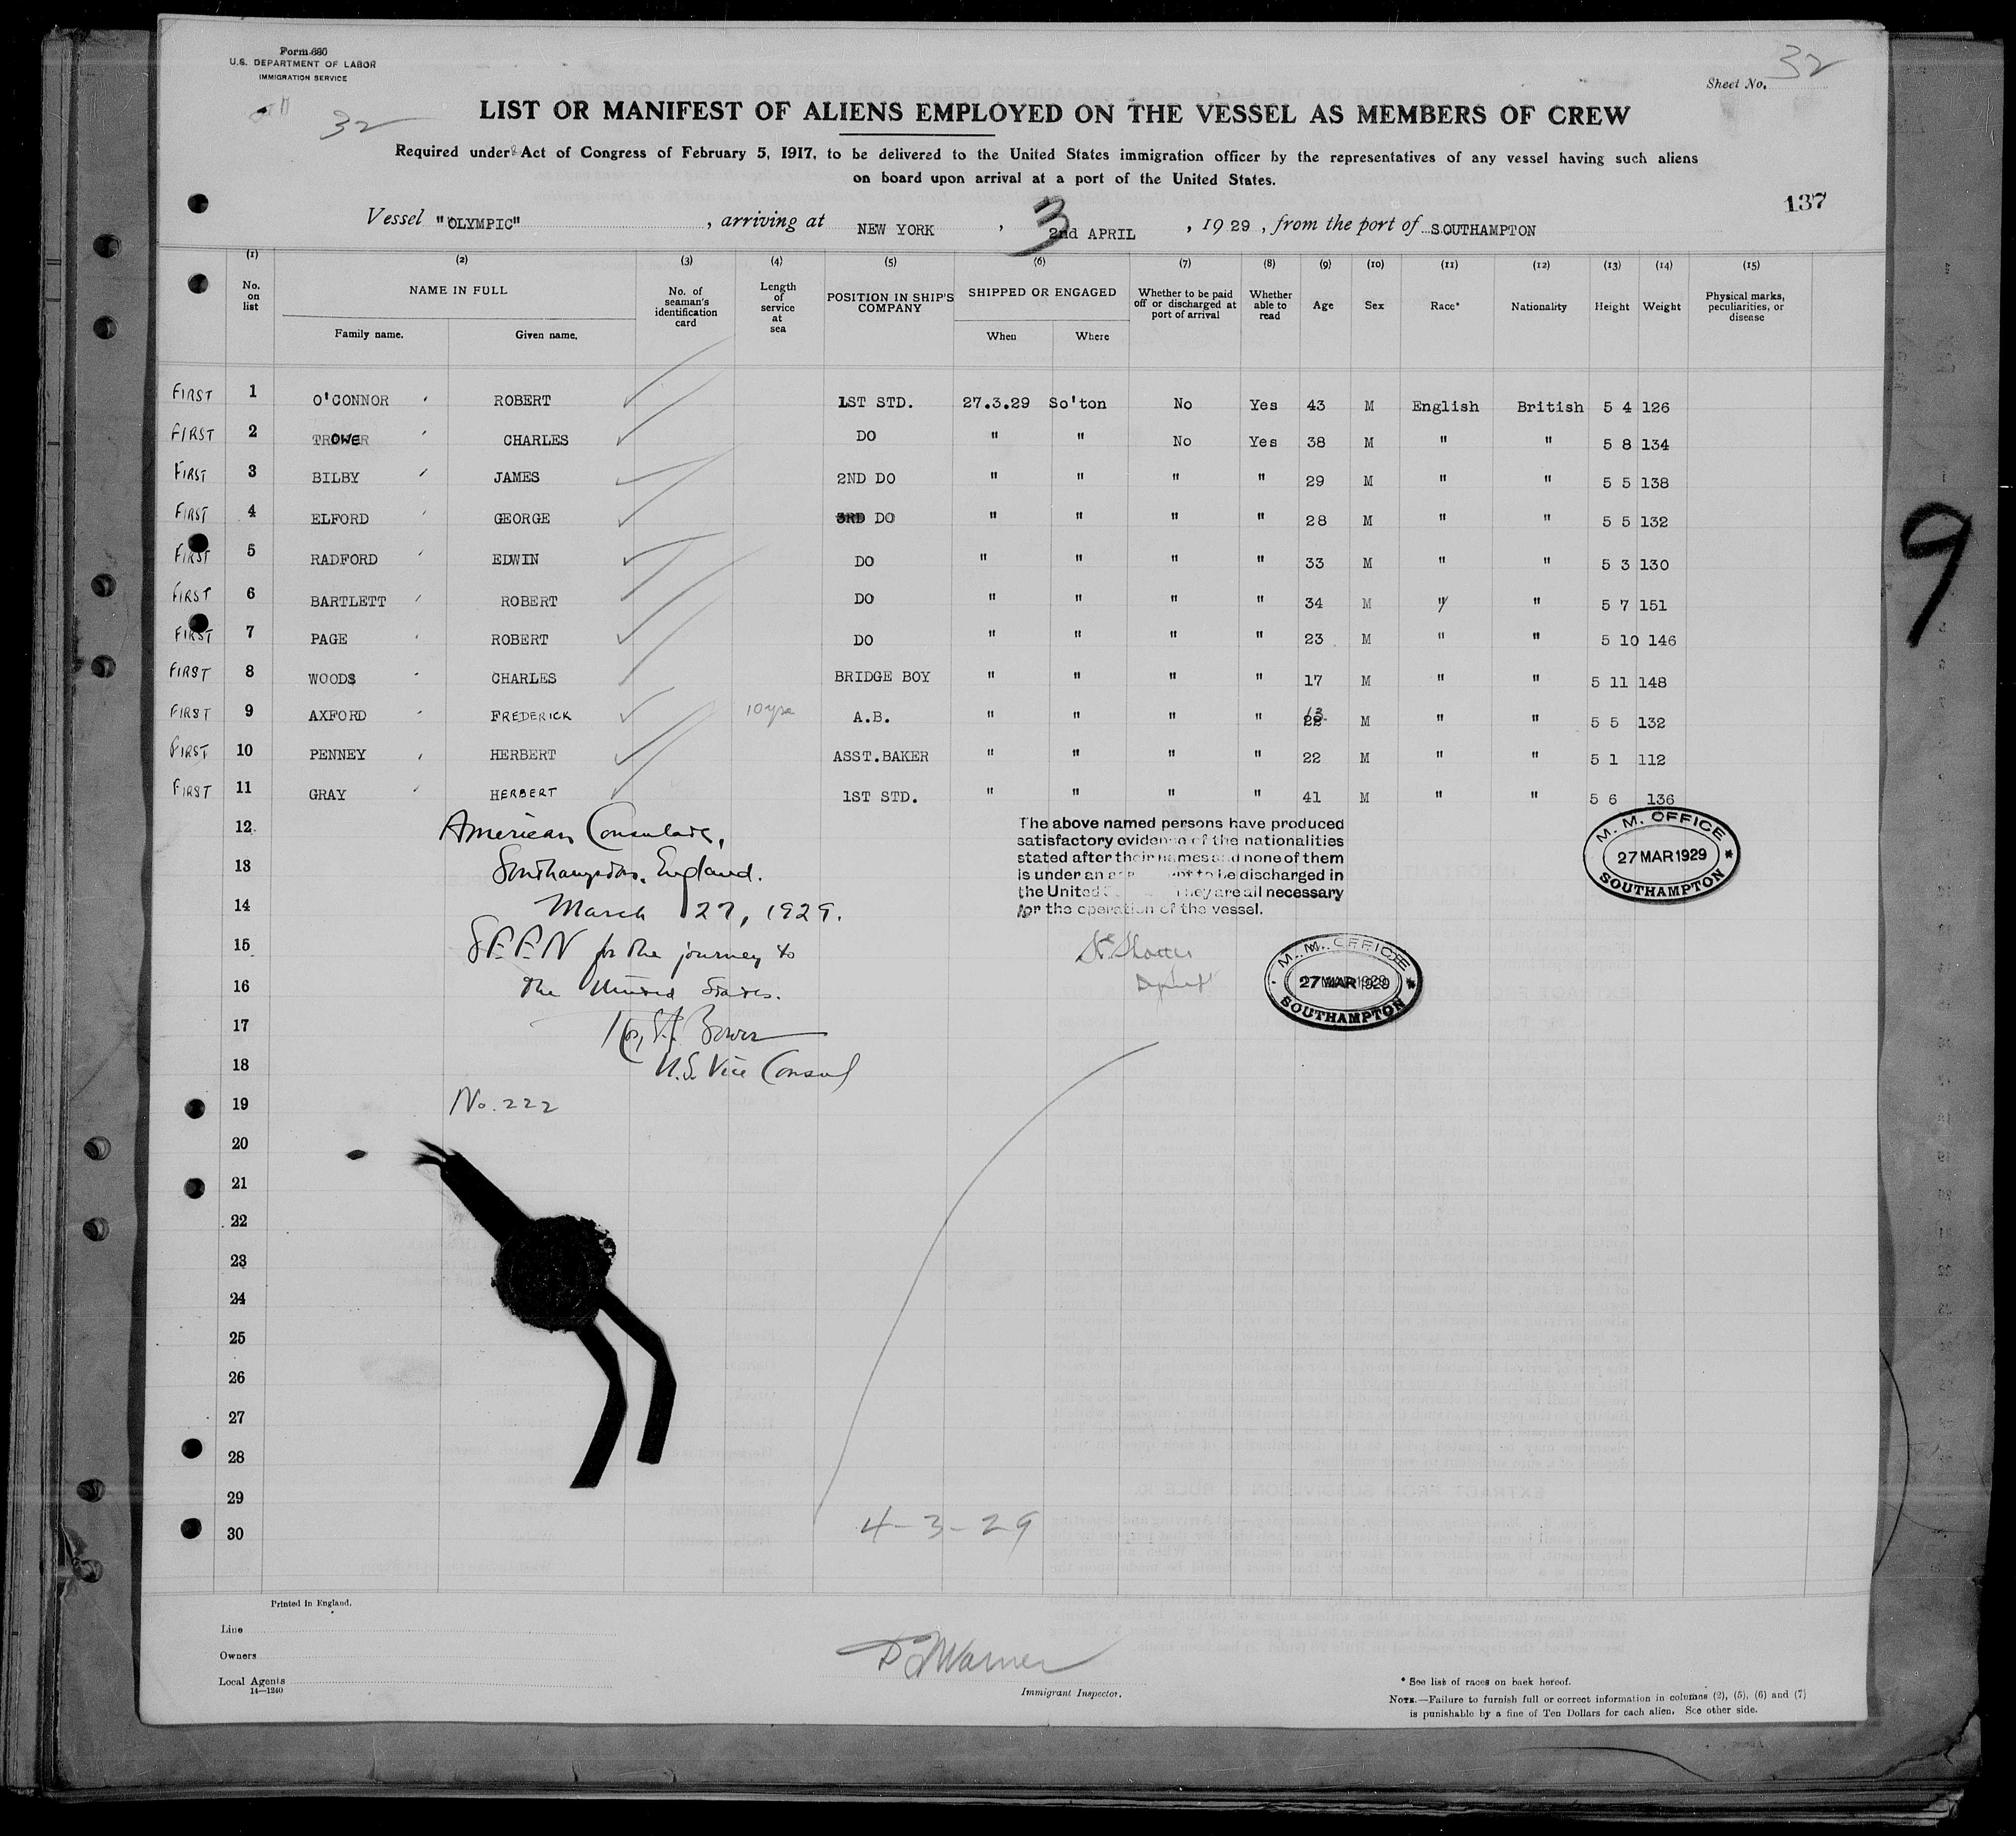 Form 680
U.S. DEPARTMENT OF LABOR
IMMIGRATION SERVICE
32
Sheet No. 32
LIST OR MANIFEST OF ALIENS EMPLOYED ON THE VESSEL AS MEMBERS OF CREW
Required under Act of Congress of February 5, 1917, to be delivered to the United States immigration officer by the representatives of any vessel having such aliens
on board upon arrival at a port of the United States.
137
Vessel "OLYMPIC", arriving at NEW YORK, 3 2nd APRIL, 1929, from the port of SOUTHAMPTON
(1) (2) (3) (4) (5) (6) (7) (8) (9) (10) (11) (12) (13) (14) (15)
No. on list NAME IN FULL Family name. Given name. No. of seaman's identification card Length of service at sea POSITION IN SHIP'S COMPANY SHIPPED OR ENGAGED When Where Whether to be paid off or discharged at port of arrival Whether able to read Age Sex Race* Nationality Height Weight Physical marks, peculiarities, or disease
FIRST 1 O'CONNOR ROBERT 1ST STD. 27.3.29 So'ton No Yes 43 M English British 5 4 126
FIRST 2 TROWER CHARLES DO " " No Yes 38 M " " 5 8 134
FIRST 3 BILBY JAMES 2ND DO " " " " 29 M " " 5 5 138
FIRST 4 ELFORD GEORGE 3RD DO " " " " 28 M " " 5 5 132
FIRST 5 RADFORD EDWIN DO " " " " 33 M " " 5 3 130
FIRST 6 BARTLETT ROBERT DO " " " " 34 M " " 5 7 151
FIRST 7 PAGE ROBERT DO " " " " 23 M " " 5 10 146
FIRST 8 WOODS CHARLES BRIDGE BOY " " " " 17 M " " 5 11 148
FIRST 9 AXFORD FREDERICK 10 yrs A.B. " " " " M " " 5 5 132
FIRST 10 PENNEY HERBERT ASST.BAKER " " " " 22 M " " 5 1 112
FIRST 11 GRAY HERBERT 1ST STD. " " " " 41 M " " 5 6 136
12
13
14
15
16
17
18
19
20
21
22
23
24
25
26
27
28
29
30
American Consulate,
Southampton, England.
March 27, 1929.
SEEN for the journey to
the United States.
U.S. Vice Consul
No. 222
The above named persons have produced
satisfactory evidence of the nationalities
stated after their names and none of them
is under an to be discharged in
the United They are all necessary
for the operation of the vessel.
M. M. OFFICE
27 MAR 1929
SOUTHAMPTON
M. M. OFFICE
27 MAR 1929
SOUTHAMPTON
9
4-3-29
Printed in England.
Line
Owners
Local Agents
14—1240
Warner
Immigrant Inspector.
* See list of races on back hereof.
NOTE.—Failure to furnish full or correct information in columns (2), (5), (6) and (7)
is punishable by a fine of Ten Dollars for each alien. See other side.